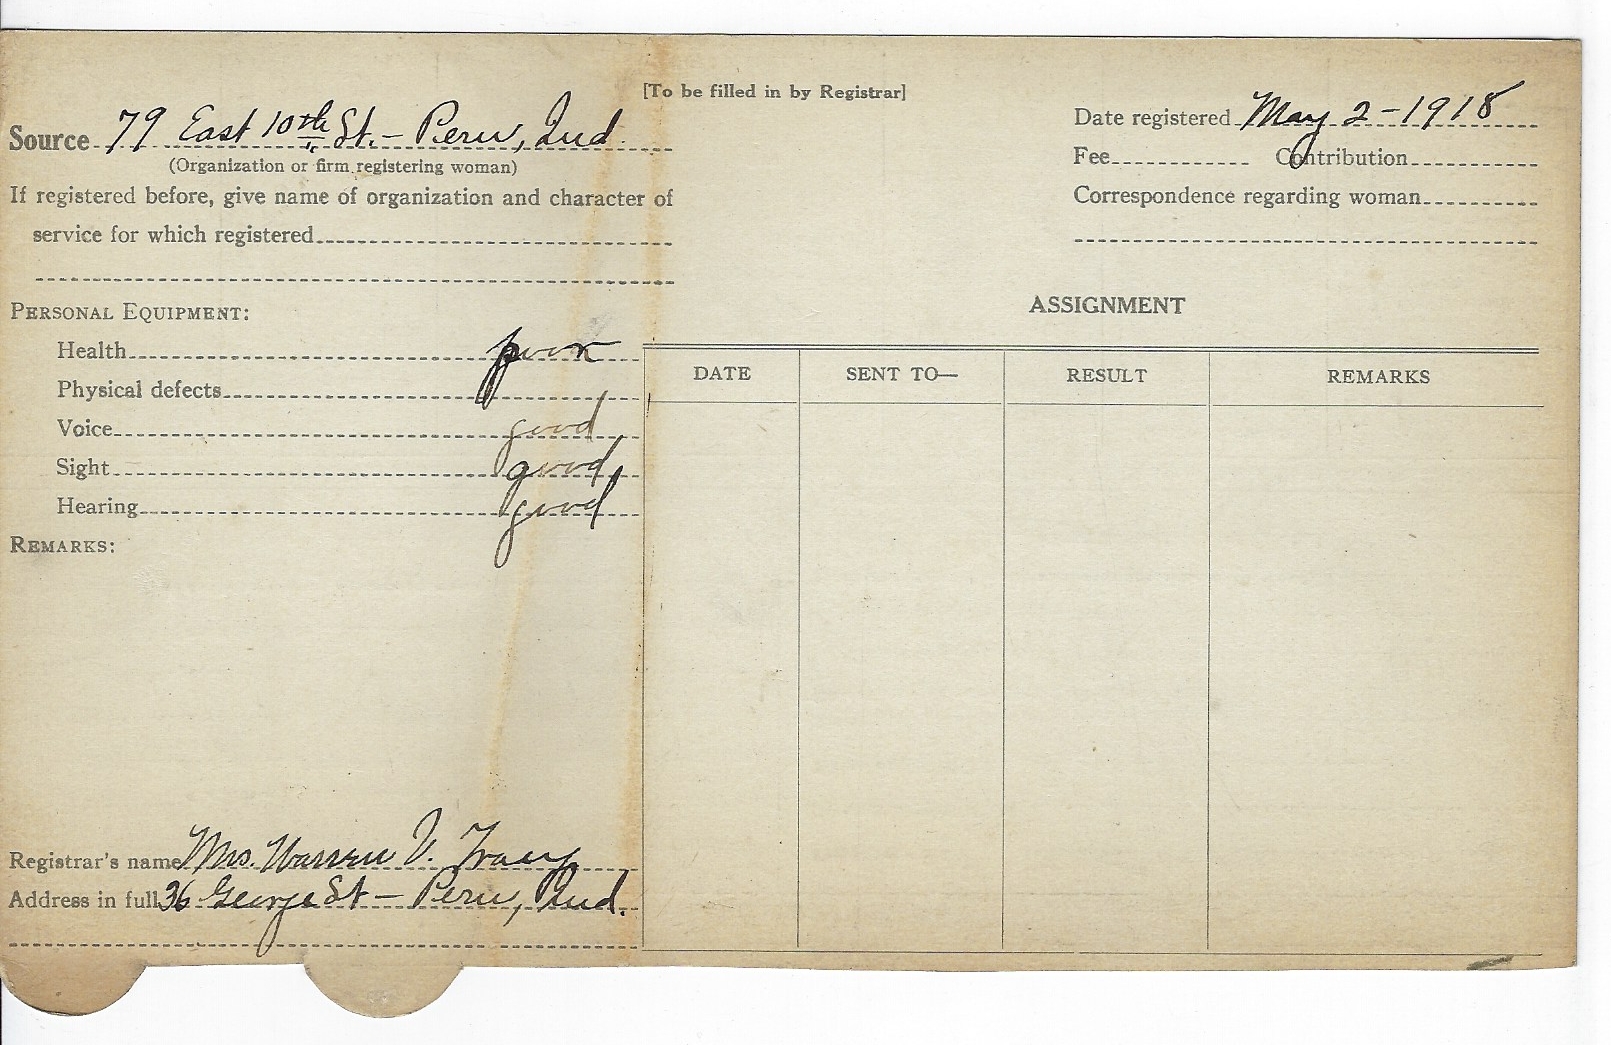 [To be filled in by Registrar]
Source 79 East 10th St. - Peru, Ind.
(Organization or firm registering woman)
If registered before, give name of organization and character of
service for which registered
PERSONAL EQUIPMENT:
Health poor
Physical defects
Voice good
Sight good
Hearing good
REMARKS:
Registrar's name Mrs. Warren V. Tracy
Address in full 36 George St - Peru, Ind.
Date registered May 2-1918
Fee Contribution
Correspondence regarding woman
ASSIGNMENT
DATE SENT TO— RESULT REMARKS